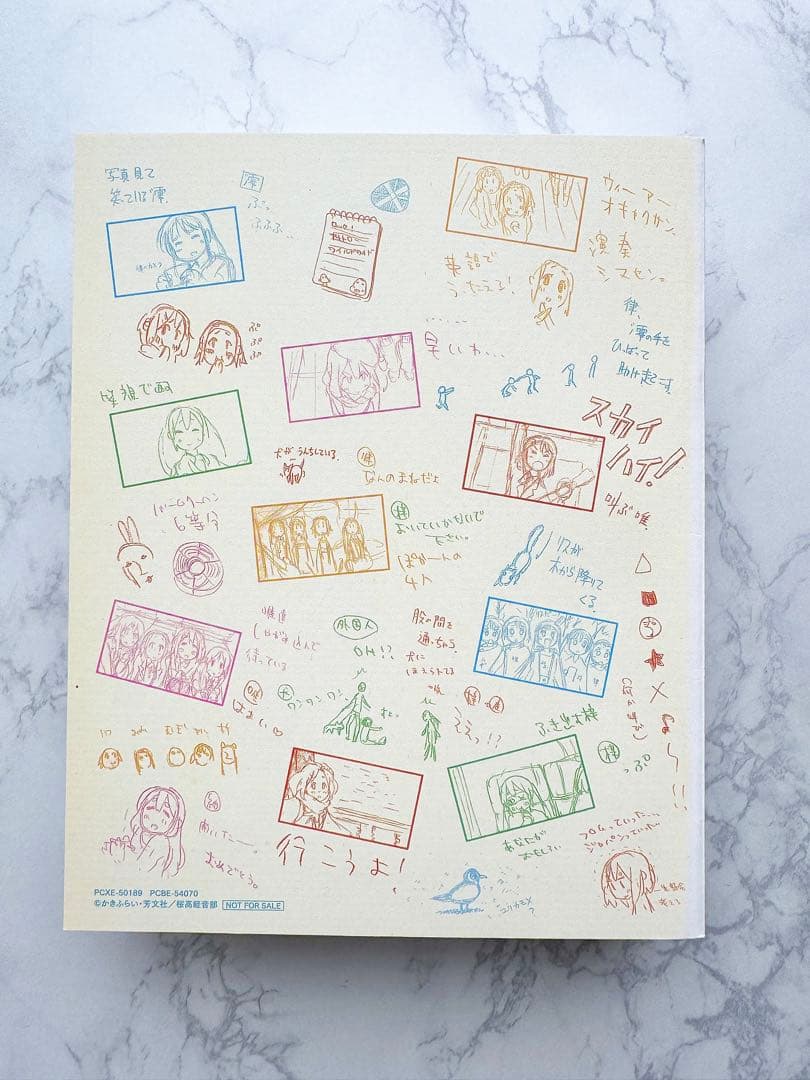 写真見て
笑っている澪
澪
ぷっ
ふふふ…
ウィーアー
オキャクサン、
演奏
シマセン。
英語で
うったえる!
律、
澪の手を
ひっぱって
助け起こす。
ぷ
ぷ
ぷ
……
早いわ…
スカイ
ハイ!
叫ぶ唯
犬がうんちしている。
なんのまねだよ
バームクーヘン
6等分
梓
おいていかないで
下さい。
ぽかーんの
4人
リスが
木から降りて
くる。
唯達
しゃがみ込んで
待っている
外国人
OH!?
犬
ワンワンワン
股の間を
通っちゃう
犬に
ほえられてる
唯
ええっ!?
ふき出す梓
梓
っぷ
あなたが
おもしろい
行こうよ!
おめでとう。
フロムっていった…
ジャパンっていった…
ユリカモメ
?
PCXE-50189 PCBE-54070
©かきふらい・芳文社/桜高軽音部 NOT FOR SALE